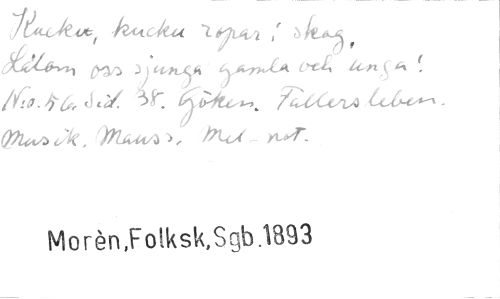 Kucku, kucku ropar i skog.
Låtom oss sjunga gamla och unga!
N:o. Sid. 38. Göken. Fallersleben.
Musik. Mauss. Mel-not.
Morèn,Folksk,Sgb.1893